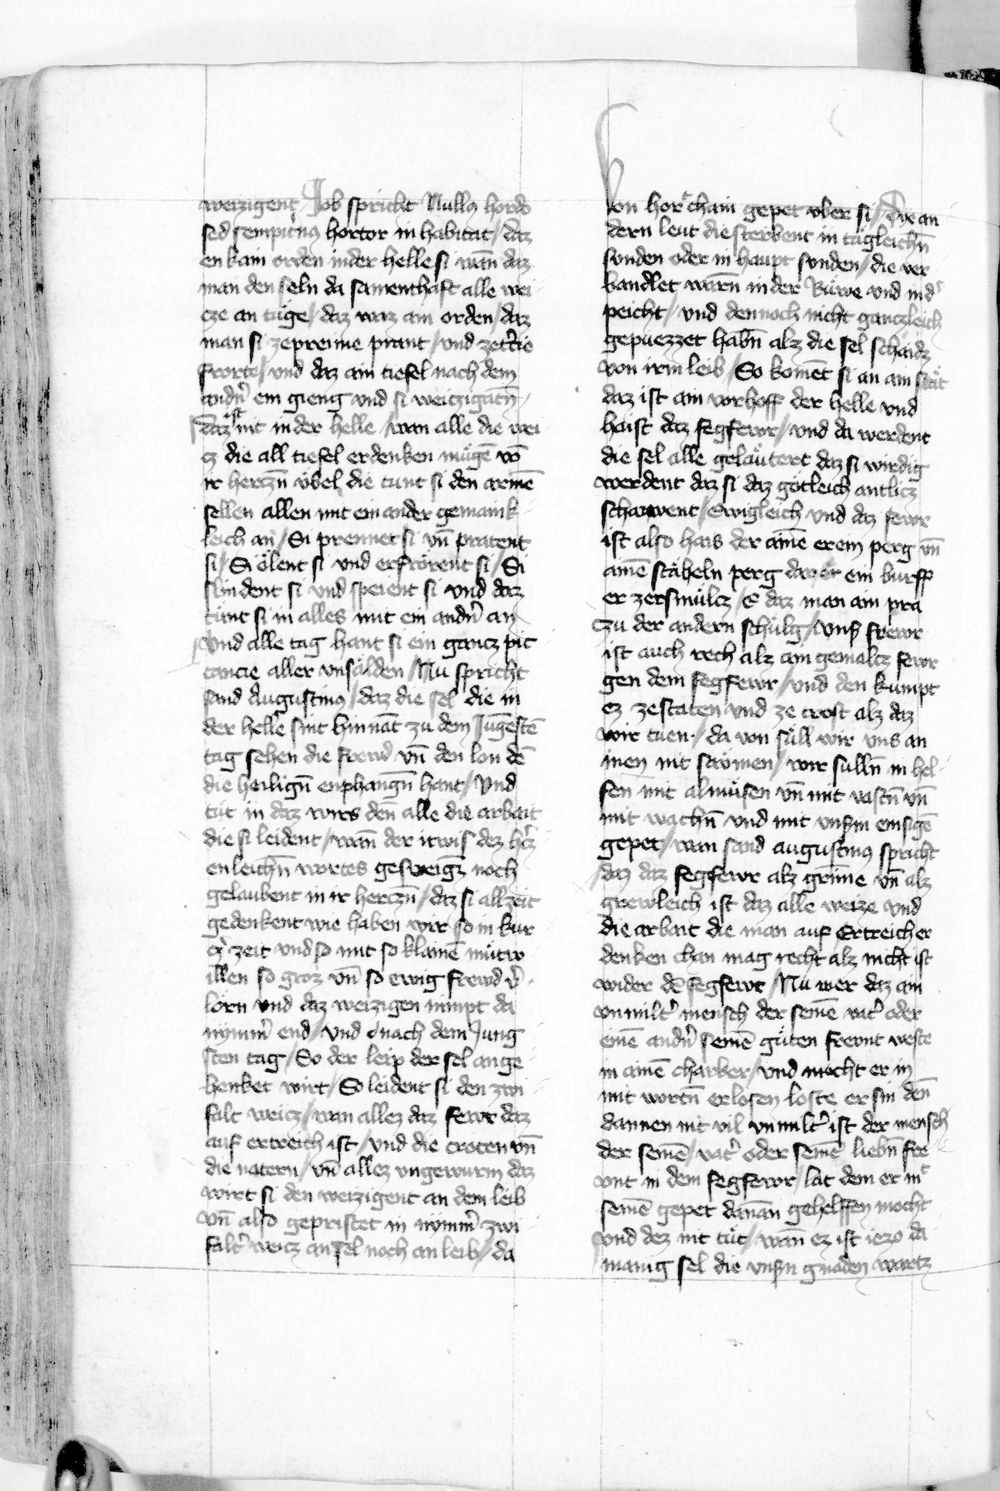 weizigent / Job spricht Nullus hordo
sed sempitnus hortor in habitat / daz
en kain orden in der helle si wan daz
man den seln da samenthaft alle wei
cze an tüge / daz waz ain orden / daz
man si ze prenne prant / vnd ze
frorte / vnd daz ain tiefel nach dem
andn̄ ein gieng vnd si weiczigatn̄
daz ist nit in der helle / wan alle die wei
cz die all tiefel erdenken mügē vō
ir herczn̄ übel die tunt si den armē
sellen allen mit ein ander gemaink
leich an / Si prennet si vn̄ pratent
si / Si ölent si vnd erfrörent si / Si
slindent si vnd speient si vnd daz
tünt si in alles mit ein andn̄ an
Vnd alle tag hant si ein gancz pit
tancie aller vnsälden / Nu spricht
sand Augustinus / daz die sel die in
der helle sint hinnāt zu dem Jungestē
tag sehen die frewd vn̄ den lon dē
die heilign̄ enphangn̄ hant / Vnd
tüt in daz wirs den̄ alle die arbait
die si leident / wan̄ der itwis dez
enleichn̄ wortes gesweigz noch
gelaubent in ir herczn̄ / daz si allzeit
gedenkent wie haben wir so in kur
cz zeit vnd so mit so klainē mütw
illen so groz vn̄ so ewig frewd v
lorn vnd daz weizigen nimpt da
nymm end / vnd nach dem Jung
sten tag / So der leip der sel ange
henket wirt / So leident si den zwi
falt weicz / wan allez daz fewr daz
auf ertreich ist / vnd die croten vn̄
die natern / vn̄ allez vngewurm daz
wirt si den weizigent an dem leib
vn̄ also gepristet in nymm zwi
falt weicz an sel noch an leib / da
von hör chain gepet vber si / Die an
dern leut die sterbent in tägleichn̄
sünden oder in haupt sunden / die ver
bandlet warn̄ in der Rüwe vnd in d
peicht / vnd dennoch nicht ganczleich
gepuezzet habn̄ alz die sel schaidz
von irm leib / So komēt si an ain stät
daz ist ain vorhoff der helle vnd
haist daz fegfewr / vnd da werdent
die sel alle geläutert daz si wirdig
werdent daz si daz götleich antlicz
schawent / Ewigleich vnd daz fewr
ist also hais der ainē erein perg vn̄
ainē stäheln perg dar ein wurff
er zersmülcz / E daz man ain pra
czu der andern schulg / Vnß frewr
ist auch recht alz ain gemalcz fewr
gen dem fegfewr / vnd den kumpt
ez ze staten vnd ze trost alz daz
wir tuen / da von süll wir vns an
inen nit säwmen / wir sulln̄ in hel
fen mit almüsen vn̄ mit vastn̄ vn̄
mit wachn̄ vnd mit vnßm emsigē
gepet / wan sand augustinus spricht
daz daz fegfewr alz grime vn̄ alz
grewleich ist daz alle weize vnd
die arbait die man auf Ertreich er
denken chan mag recht alz nicht ist
wider dē fegfewr / Nu wer daz ain
vnmilt mensch der seinē vat oder
einē andn̄ seinē güten frewnt weste
in ainē charker / vnd mocht er in
mit wortn̄ erlosen loste er sin den̄
dannen nit vil vnmilt ist der mensch
der seinē / vat oder seinē liebn̄ fre
vnt in dem fegfewr / lat dem er mit
seinē gepet dannan gehelffen mocht
vnd dez nit tüt / wan̄ ez ist iezo da
manig sel die vnßn gnaden wartz